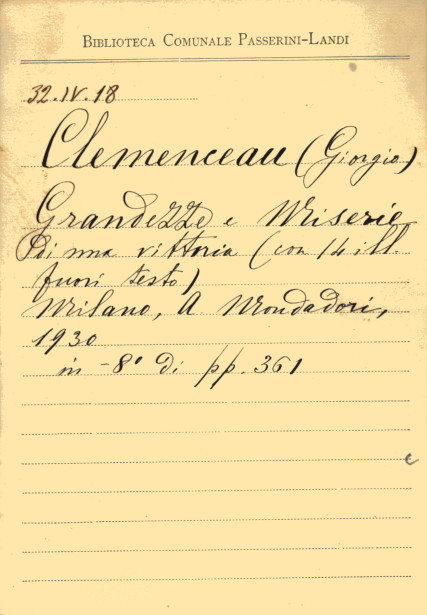 BIBLIOTECA COMUNALE PASSERINI-LANDI
32.IV.18
Clemenceau (Giorgio)
Grandezze e Miserie
di una vittoria (con 14 ill.
fuori testo)
Milano, A. Mondadori,
1930
in -8° di pp. 361